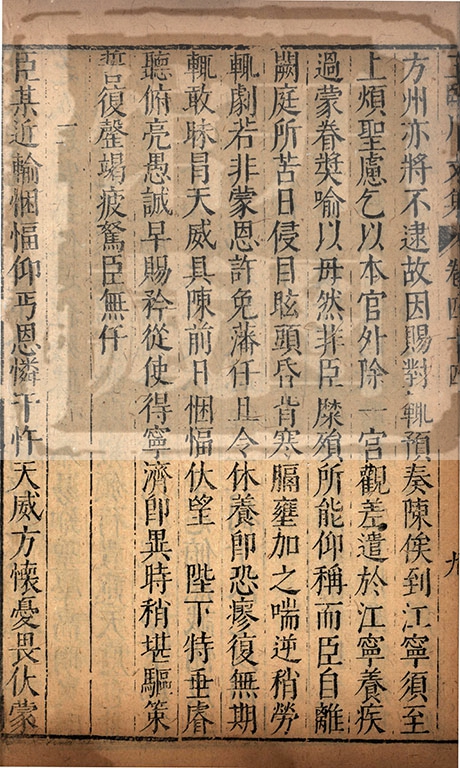 王臨川文集 卷四十四 九
方州亦將不逮故因賜對輒預奏陳俟到江寧須至
上煩聖慮乞以本官外除一宮觀差遣於江寧養疾
過蒙眷奬喻以毋然非臣糜殞所能仰稱而臣自離
闕庭所苦日侵目眩頭昏背寒膈壅加之喘逆稍勞
輒劇若非蒙恩許免藩任且令休養即恐瘳復無期
輒敢昧冒天威具陳前日悃愊伏望 陛下特垂睿
聽俯亮愚誠早賜矜從使得寧濟即異時稍堪驅策
誓復罄竭疲駑臣無任
二
臣某近輸悃愊仰丐恩憐干忤天威方懷憂畏伏蒙